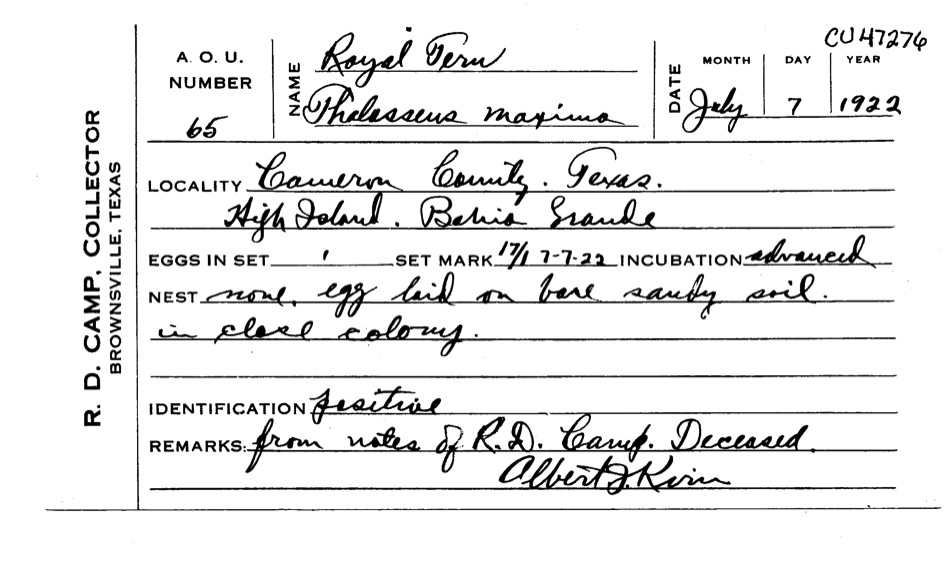 CU 47276
A. O. U.
NUMBER
65
NAME Royal Tern
Thalasseus maxima
DATE
MONTH DAY YEAR
July 7 1922
R. D. CAMP, COLLECTOR
BROWNSVILLE, TEXAS
LOCALITY Cameron County. Texas.
High Island. Bahia Grande
EGGS IN SET 1 SET MARK 17/1 7-7-22 INCUBATION advanced
NEST none. egg laid on bare sandy soil.
in close colony.
IDENTIFICATION positive
REMARKS: from notes of R.D. Camp. Deceased.
Albert J. Kirn